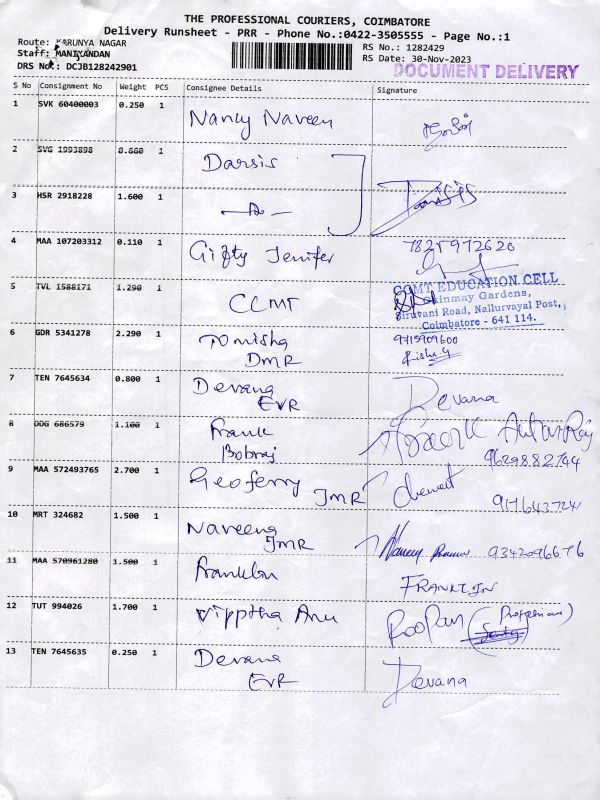 THE PROFESSIONAL COURIERS, COIMBATORE
Delivery Runsheet - PRR - Phone No.:0422-3505555 - Page No.:1
Route: KARUNYA NAGAR
Staff: MANIKANDAN
DRS No.: DCJB128242901
RS No.: 1282429
RS Date: 30-Nov-2023
DOCUMENT DELIVERY
S No Consignment No Weight PCS Consignee Details Signature
1 SVK 60400003 0.250 1 Nancy Naveen
2 SVG 1993898 0.660 1 Darsis
3 HSR 2918228 1.600 1 Darsis
4 MAA 107203312 0.110 1 Gifty Jenifer
5 TVL 1588171 1.290 1 CCMT
CCMT EDUCATION CELL
Chinmay Gardens,
Siruvani Road, Nallurvayal Post,
Coimbatore - 641 114.
6 GDR 5341278 2.290 1
DMR
9715909600
7 TEN 7645634 0.800 1 Devana Devana
EVR
8 ODG 686579 1.100 1 Frank
Bobraj
9629882744
9 MAA 572493765 2.700 1 Geoferry JMR
10 MRT 324682 1.500 1 Naveena
JMR
11 MAA 570961280 1.500 1 Franklin FRANKLIN
12 TUT 994026 1.700 1 Roopan
13 TEN 7645635 0.250 1 Devana Devana
EVR